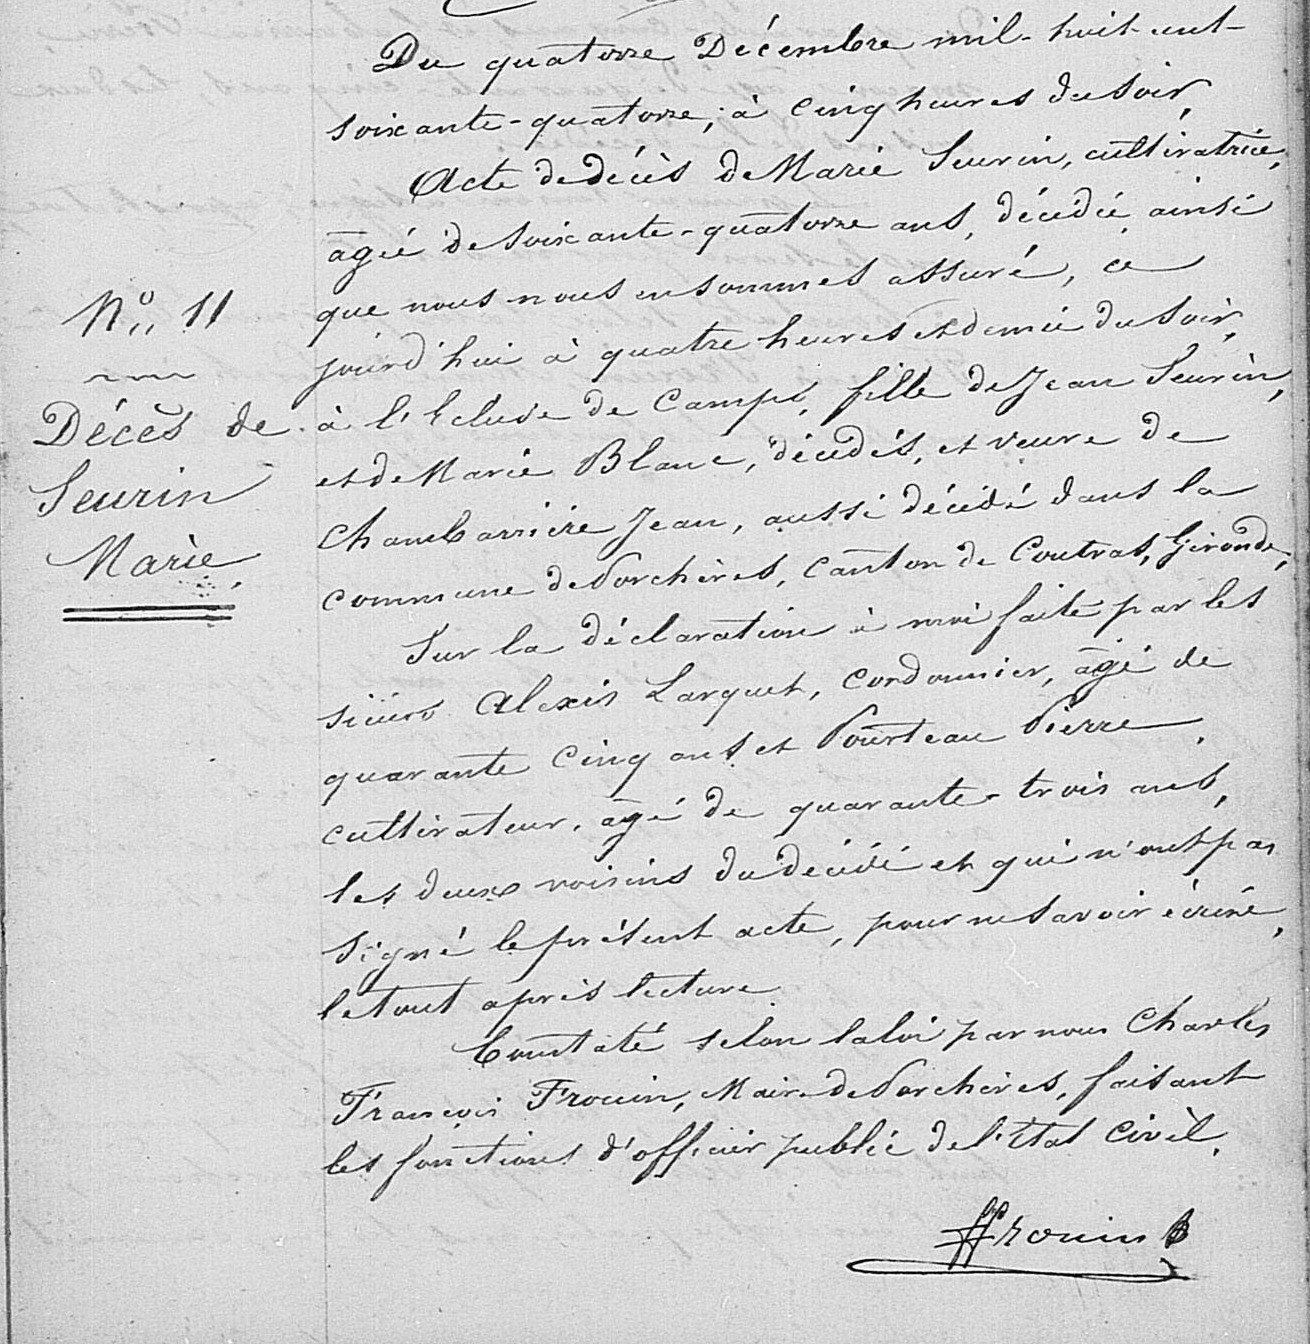 Du quatorze Décembre mil-huit-cent-
soixante-quatorze, à cinq heures du soir,
Acte de décès de Marie Seurin, cultivatrice,
âgée de soixante-quatorze ans, décédée, ainsi
que nous nous en sommes assuré, ce
jourd'hui à quatre heures et demie du soir,
à l'Ecluse de Camps, fille de Jean Seurin,
et de Marie Blanc, décédés, et veuve de
Chambarrière Jean, aussi décédé dans la
commune de Porchères, canton de Coutras, Gironde,
Sur la déclaration à moi faite par les
sieurs Alexis Larquet, cordonnier, âgé de
quarante cinq ans et Pourteau Pierre,
cultivateur, âgé de quarante-trois ans,
les deux voisins du décédé et qui n'ont pas
signé le présent acte, pour ne savoir écrire,
le tout après lecture.
Constaté selon la loi par nous Charles
François Frouin, Maire de Porchères, faisant
les fonctions d'officier public de l'état civil.
Frouin
N° 11
Décès de
Seurin
Marie,